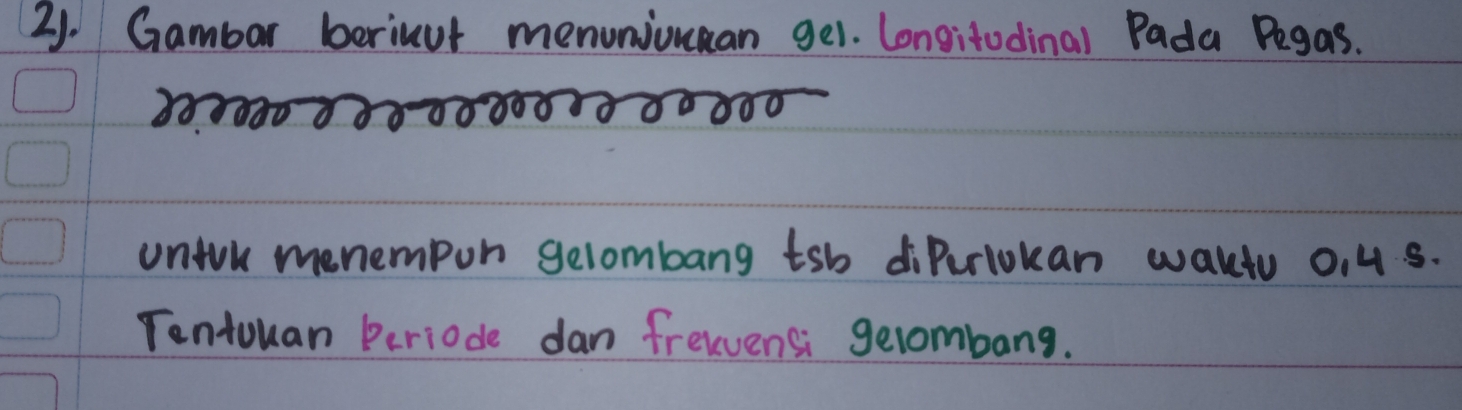 2). Gambar berikut menunjukkan gel. Longitudinal Pada Pegas.
untuk menempuh gelombang tsb diPerlukan waktu 0,4 s.
Tentukan Periode dan frekuensi gelombang.